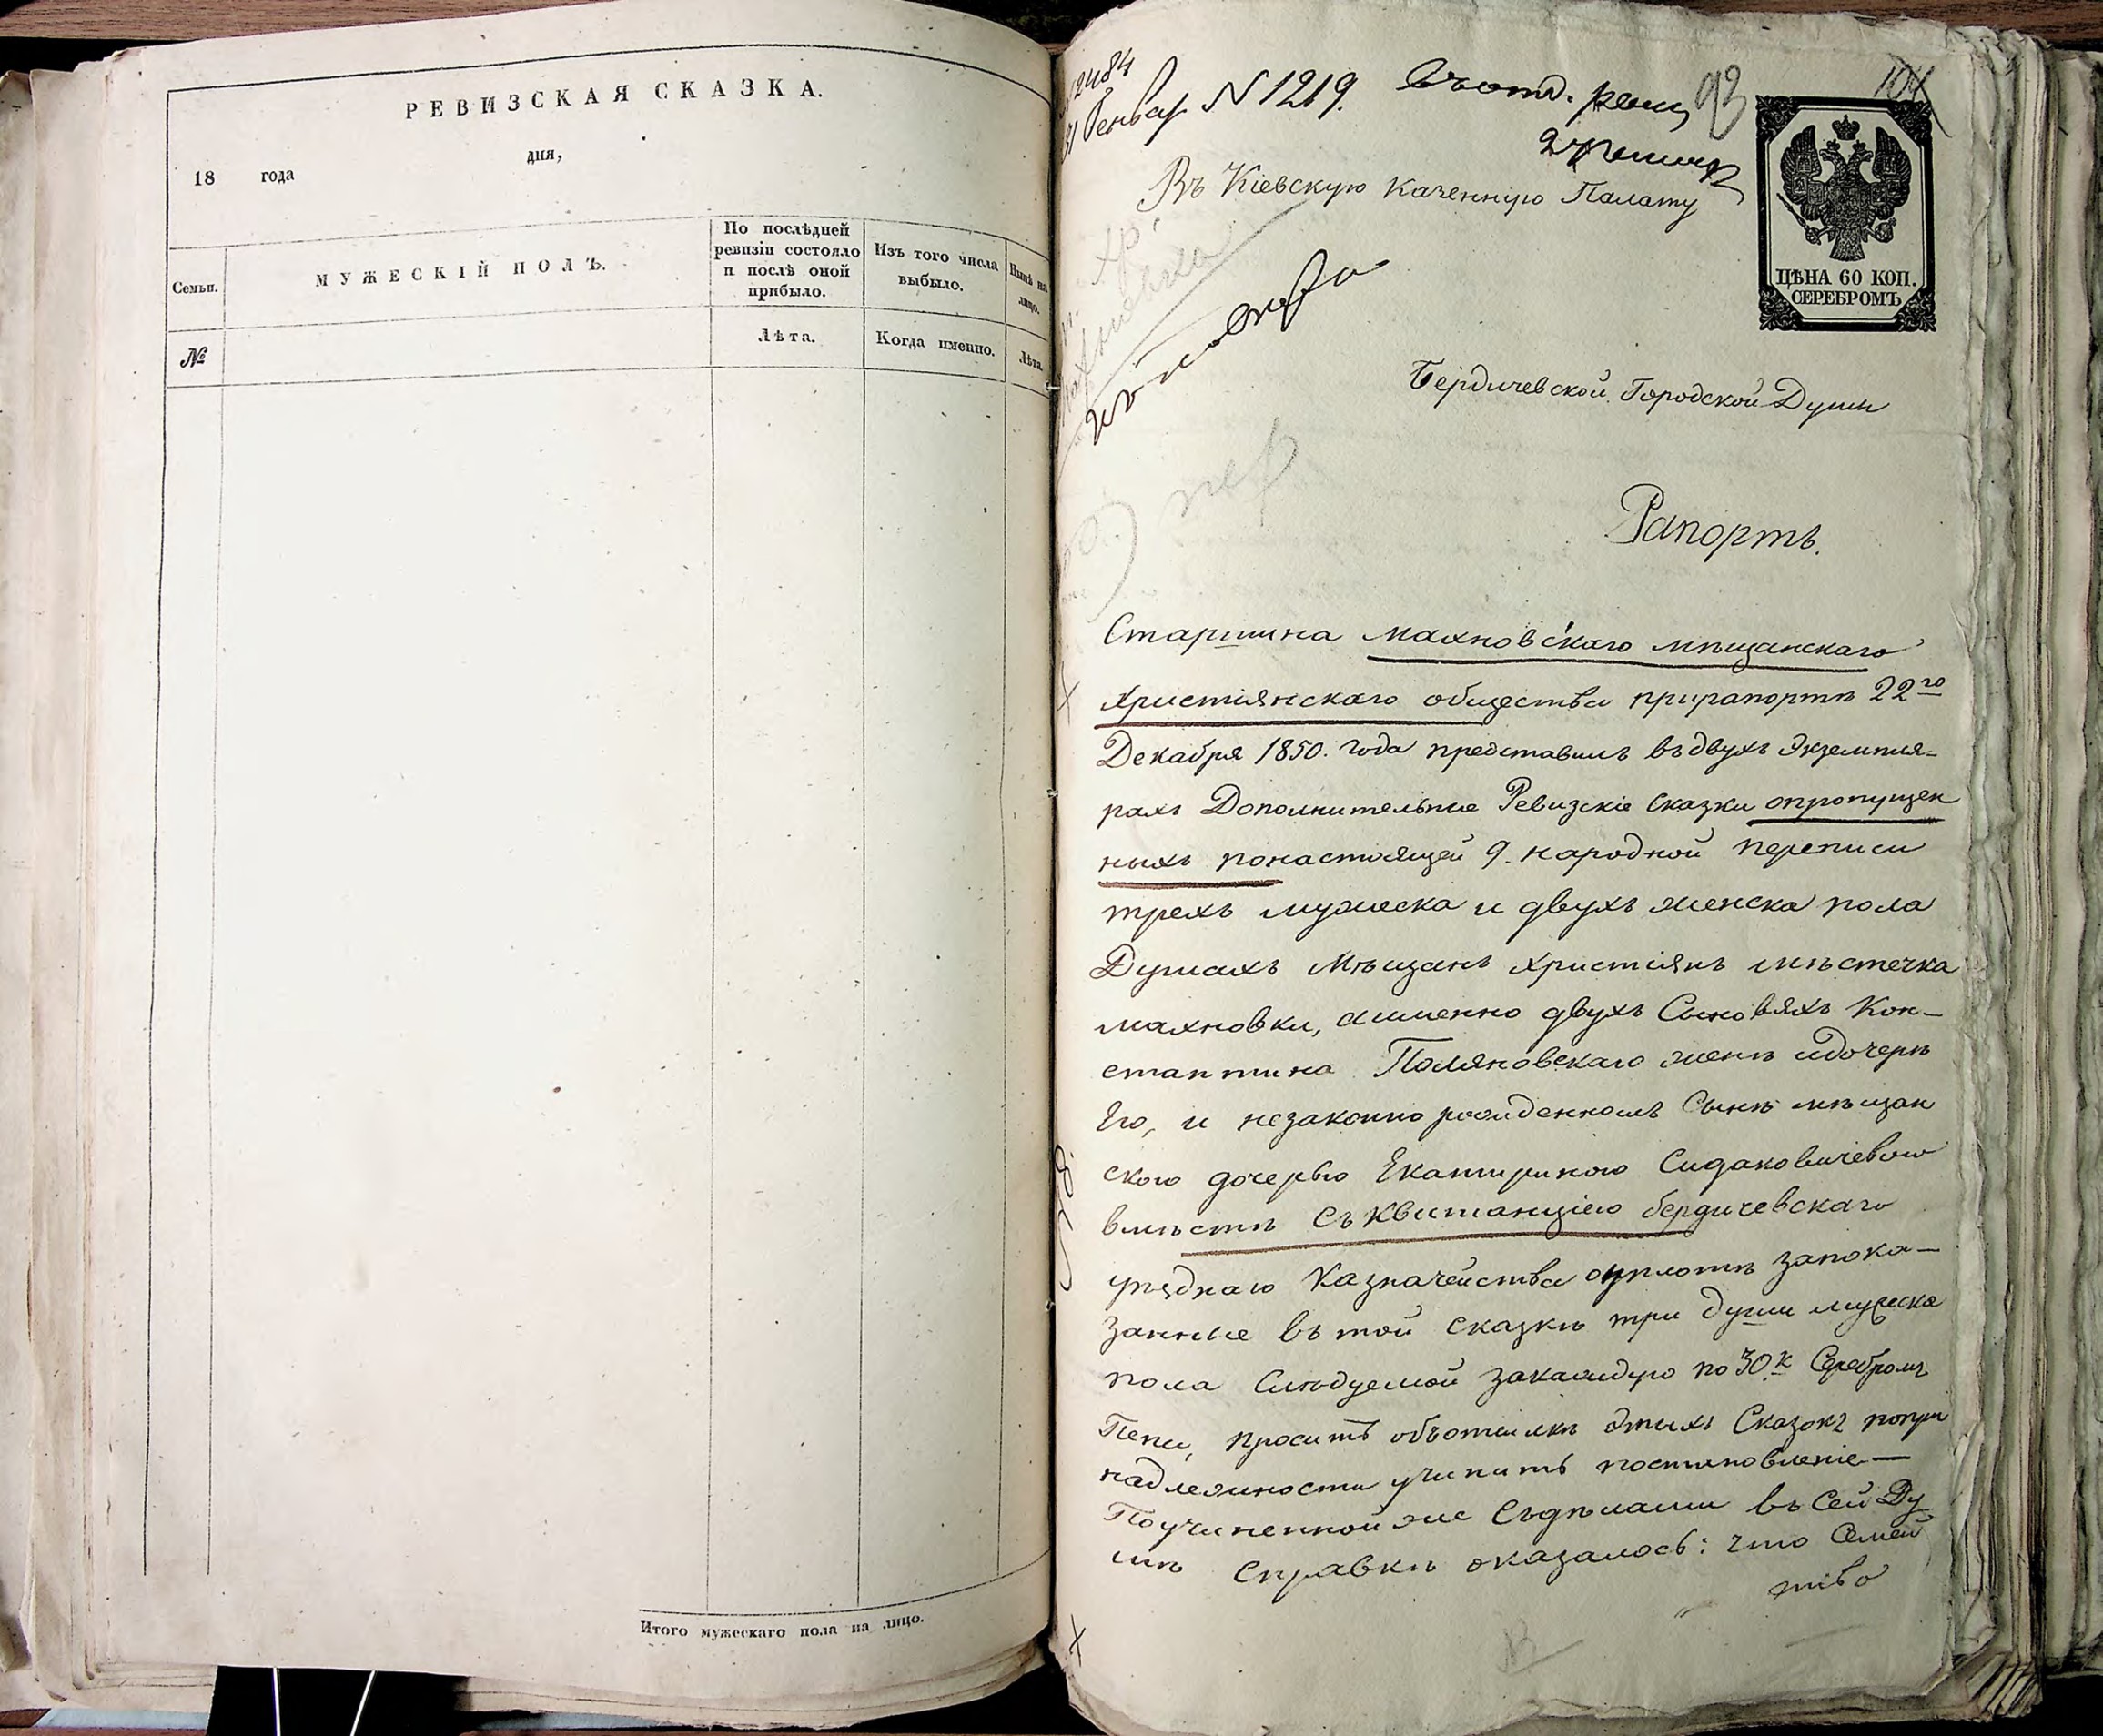 РЕВИЗСКАЯ СКАЗКА.
18 года дня,
Семьи.
МУЖЕСКІЙ ПОЛЪ.
По послѣдней
ревизіи состояло
и послѣ оной
прибыло.
Изъ того числа
выбыло.
Нынѣ на
лицо.
№
Лѣта.
Когда именно.
Лѣта.
Итого мужескаго пола на лицо.
2484
31 Генвар N 1219.
93
104
Въ Кіевскую Казенную Палату
ЦѢНА 60 КОП.
СЕРЕБРОМЪ
Бердичевской Городской Думы
Рапортъ.
Старшина Махновскаго мѣщанскаго
Христіянскаго общества прирапортѣ 22го
Декабря 1850. года представилъ въ двухъ Экземпля-
рахъ Дополнительные Ревизскіе Сказки опропущен
ныхъ понастоящей 9. народной переписи
трехъ мужеска и двухъ женска пола
Душахъ Мѣщанъ Христіянъ мѣстечка
Махновки, аименно двухъ Сыновяхъ Кон-
стантина Поляновскаго женѣ идочерѣ
Его, и незаконно рожденномъ Сынѣ мѣщан
скою дочерью Екатериною Сидаковичевою
вмѣстѣ съ Квитанціею бердичевскаго
уѣзднаго Казначейства оуплотѣ запока-
занные въ той сказкѣ три души мужеска
пола Слѣдуемой закаждую по 30.к Серебромъ
Пени, проситъ объотсылкѣ этыхъ Сказокъ попри
надлежности учинить постановленіе—
Поучиненной же Съдѣлами въ Сей Ду
мѣ Справкѣ оказалось: что Семей
ство